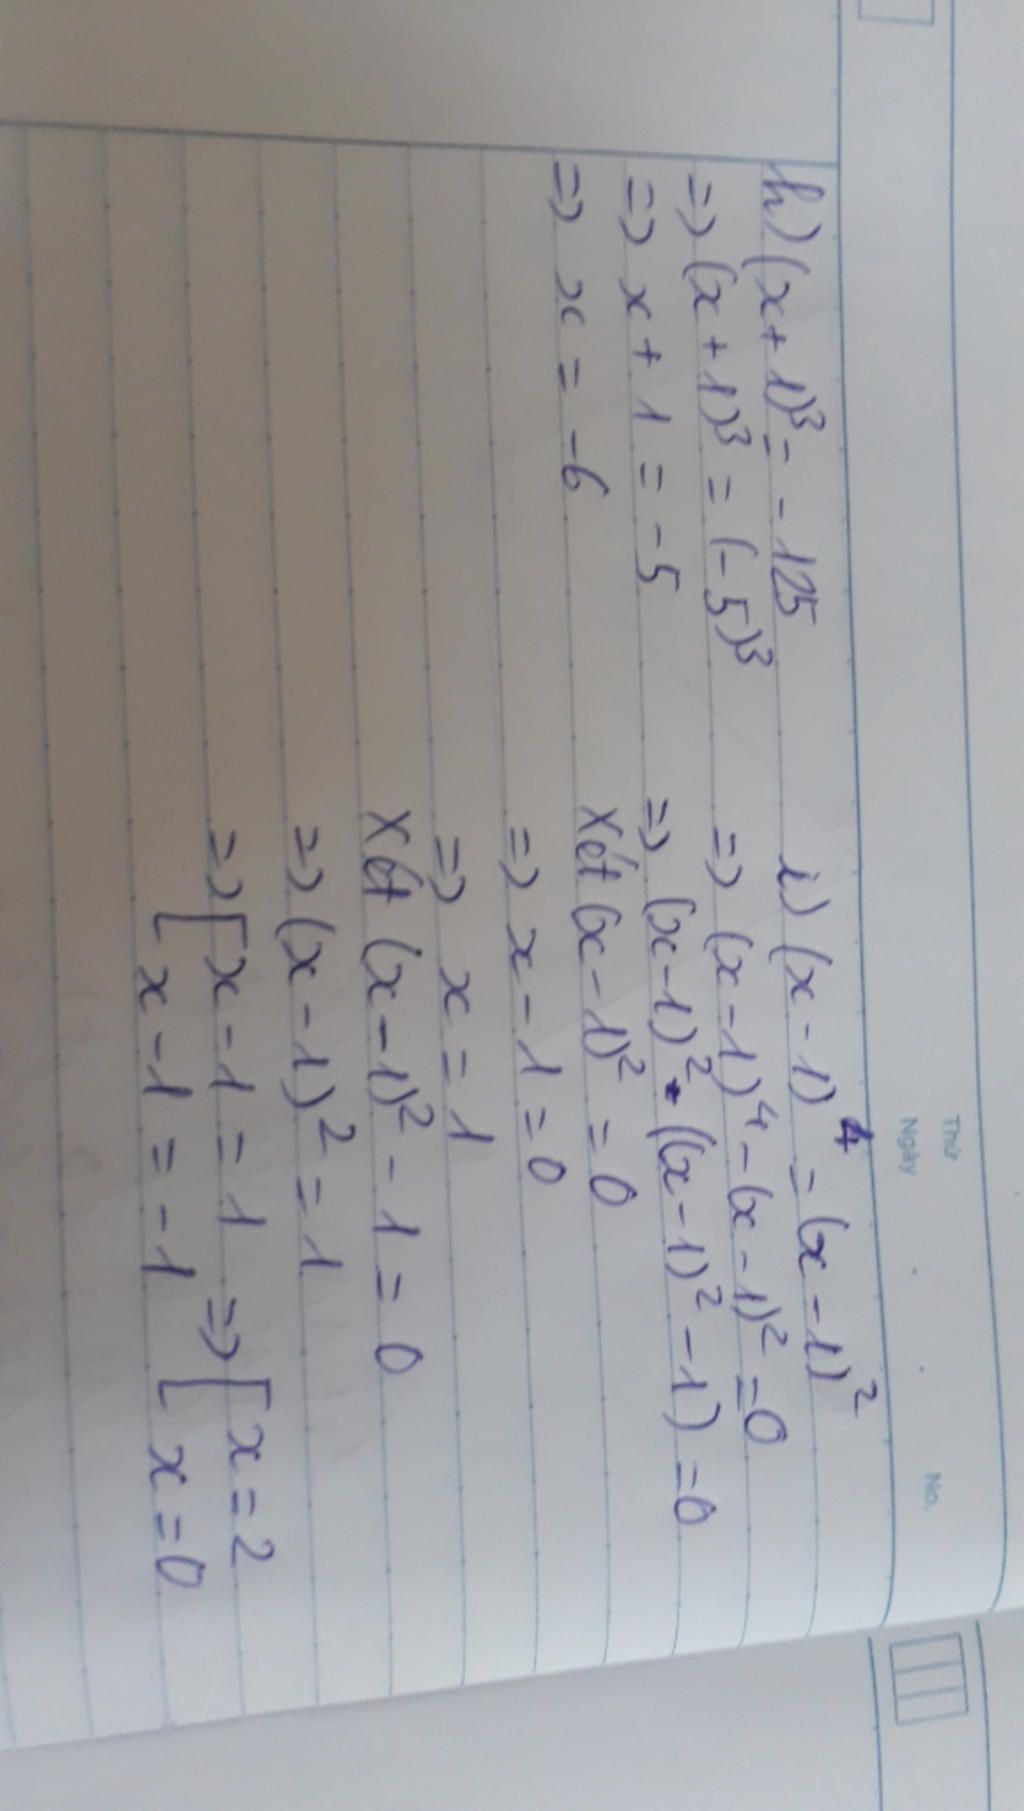 Thứ
Ngày
No.
h) (x+1)³ = -125
=> (x+1)³ = (-5)³
=> x+1 = -5
=> x = -6
i) (x-1)⁴ = (x-1)²
=> (x-1)⁴ - (x-1)² = 0
=> (x-1)² . ((x-1)² - 1) = 0
Xét (x-1)² = 0
=> x-1 = 0
=> x = 1
Xét (x-1)² - 1 = 0
=> (x-1)² = 1
=> [x-1 = 1 => [x = 2
[x-1 = -1 [x = 0